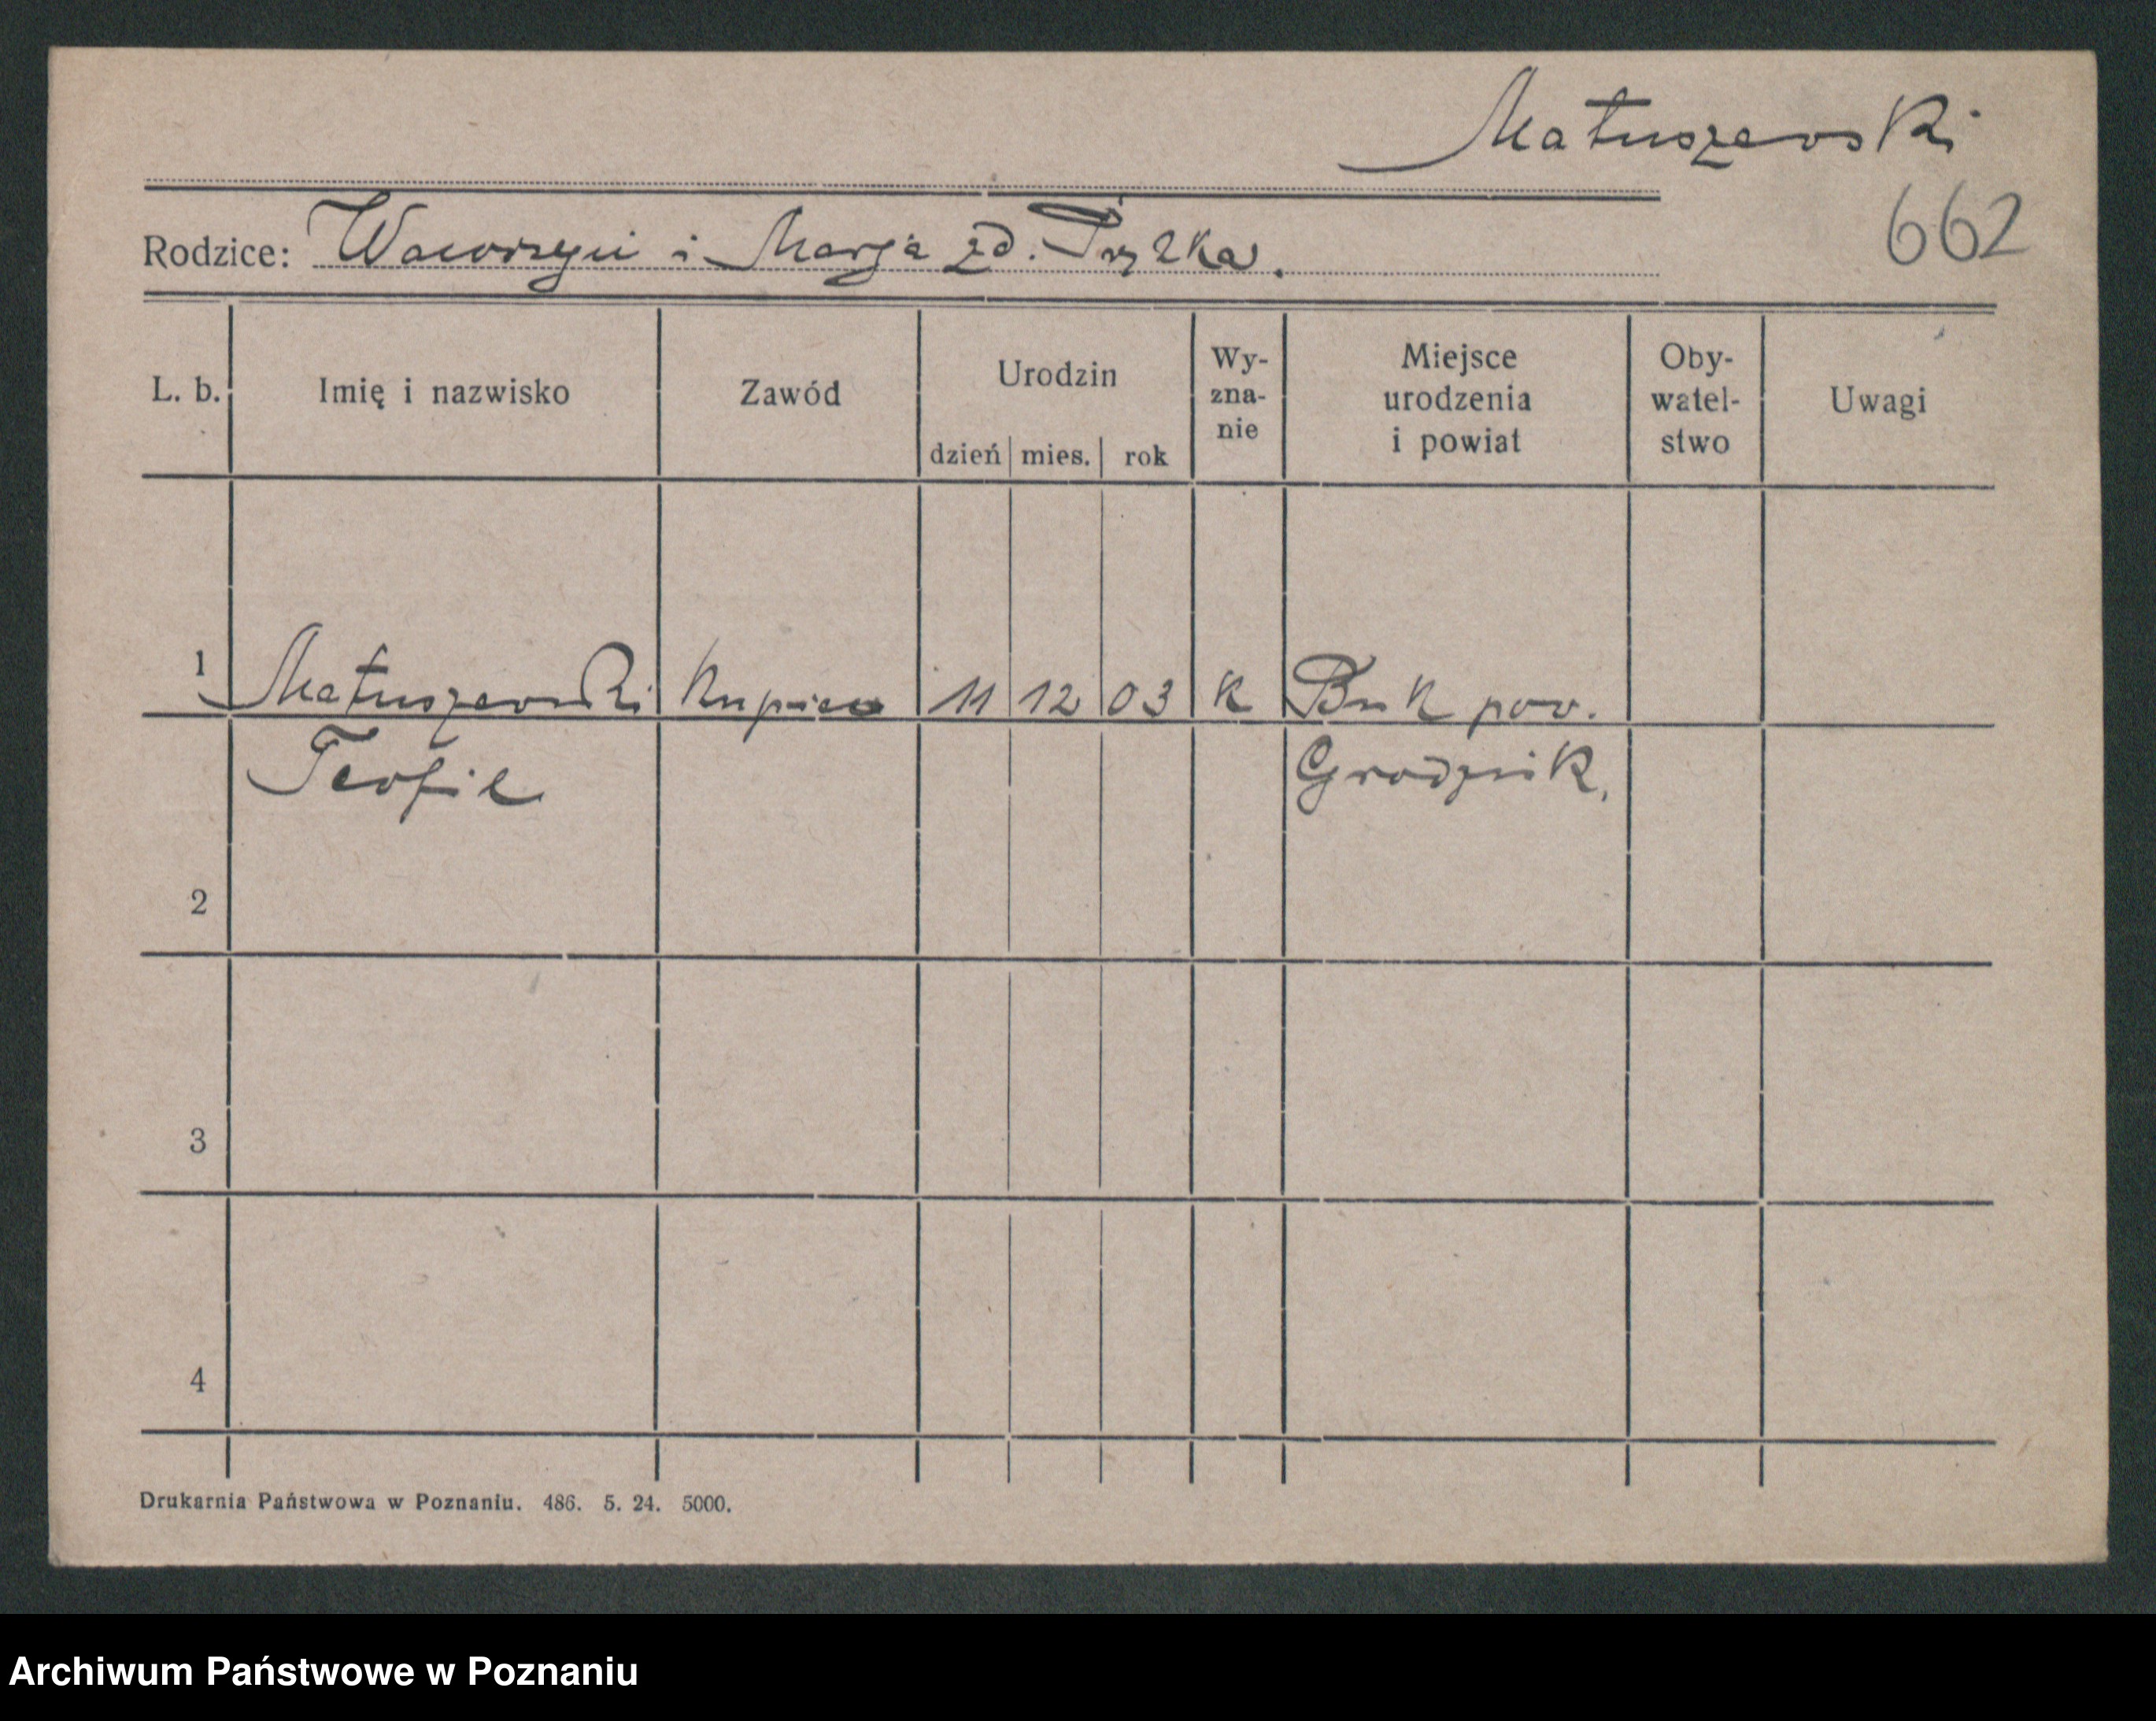 Matuszewski
662
Rodzice: Wawrzyn i Marja zd.
L. b. Imię i nazwisko Zawód Urodzin dzień mies. rok Wy-zna-nie Miejsce urodzenia i powiat Oby-watel-stwo Uwagi
1 Matuszewski Kupiec 11 12 03 K Buk pow.
Teofil Grodzisk.
2
3
4
Drukarnia Państwowa w Poznaniu. 486. 5. 24. 5000.
Archiwum Państwowe w Poznaniu